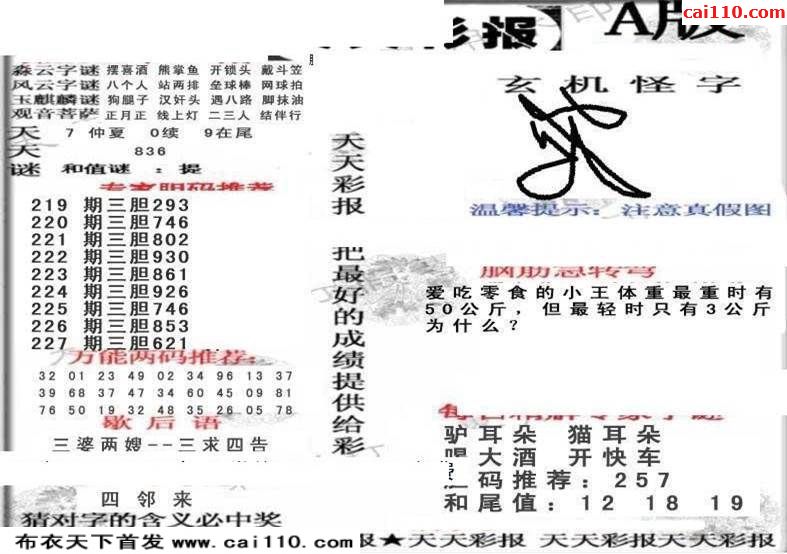 cai110.com
彩报】A版
森云字谜 摆喜酒 熊掌鱼 开锁头 戴斗笠
风云字谜 八个人 站两排 垒球棒 网球拍
玉麒麟谜 狗腿子 汉奸头 遇八路 脚抹油
观音菩萨 正月正 线上灯 二三人 结伴行
天 7 仲夏 0续 9在尾
天 836
谜 和值谜 : 提
专家胆码推荐
219 期三胆293
220 期三胆746
221 期三胆802
222 期三胆930
223 期三胆861
224 期三胆926
225 期三胆746
226 期三胆853
227 期三胆621
万能两码推荐:
32 01 23 49 02 34 96 13 37
39 68 37 47 34 60 45 09 81
76 50 19 32 48 35 26 05 78
歇后语
三婆两嫂--三求四告
四邻来
猜对字的含义必中奖
天天彩报 把最好的成绩提供给彩
玄机怪字
温馨提示: 注意真假图
脑筋急转弯
爱吃零食的小王体重最重时有
50公斤，但最轻时只有3公斤
为什么？
驴耳朵 猫耳朵
喝大酒 开快车
码推荐: 257
和尾值: 12 18 19
布衣天下首发 www.cai110.com 报★天天彩报 天天彩报天天彩报